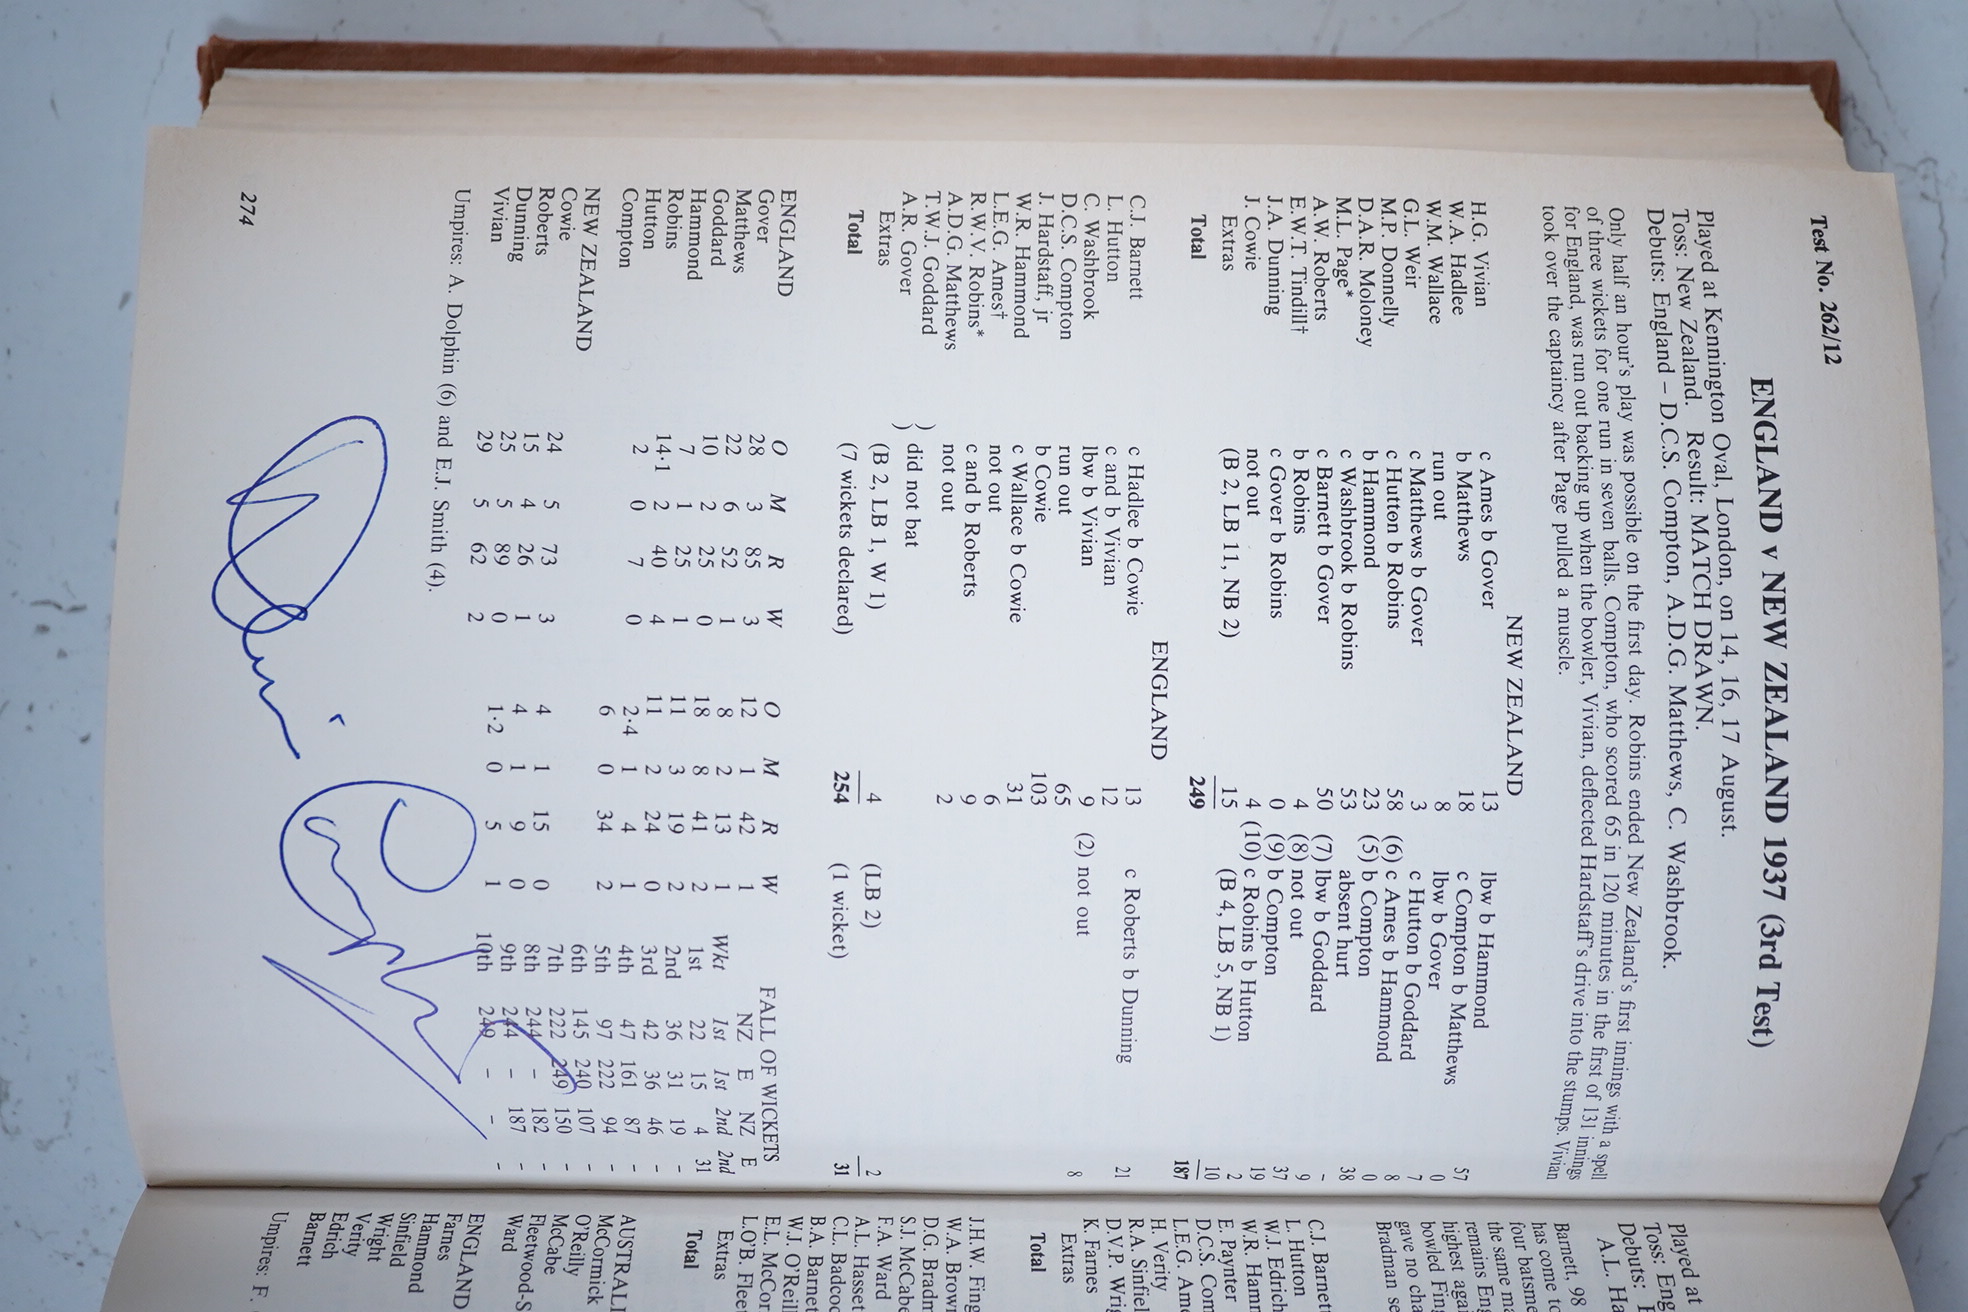 Test No. 262/12
ENGLAND v NEW ZEALAND 1937 (3rd Test)
Played at Kennington Oval, London, on 14, 16, 17 August.
Toss: New Zealand. Result: MATCH DRAWN.
Debuts: England – D.C.S. Compton, A.D.G. Matthews, C. Washbrook.
Only half an hour's play was possible on the first day. Robins ended New Zealand's first innings with a spell
of three wickets for one run in seven balls. Compton, who scored 65 in 120 minutes in the first of 131 innings
for England, was run out backing up when the bowler, Vivian, deflected Hardstaff's drive into the stumps. Vivian
took over the captaincy after Page pulled a muscle.
NEW ZEALAND
H.G. Vivian c Ames b Gover 13 lbw b Hammond 57
W.A. Hadlee b Matthews 18 c Compton b Matthews 0
W.M. Wallace run out 8 lbw b Gover 7
G.L. Weir c Matthews b Gover 3 c Hutton b Goddard 8
M.P. Donnelly c Hutton b Robins 58 (6) c Ames b Hammond 0
D.A.R. Moloney b Hammond 23 (5) b Compton 38
M.L. Page* c Washbrook b Robins 53 absent hurt -
A.W. Roberts c Barnett b Gover 50 (7) lbw b Goddard 9
E.W.T. Tindill† b Robins 4 (8) not out 37
J.A. Dunning c Gover b Robins 0 (9) b Compton 19
J. Cowie not out 4 (10) c Robins b Hutton 2
Extras (B 2, LB 11, NB 2) 15 (B 4, LB 5, NB 1) 10
Total 249 187
ENGLAND
C.J. Barnett c Hadlee b Cowie 13 c Roberts b Dunning 21
L. Hutton c and b Vivian 12
C. Washbrook lbw b Vivian 9 (2) not out 8
D.C.S. Compton run out 65
J. Hardstaff, jr b Cowie 103
W.R. Hammond c Wallace b Cowie 31
L.E.G. Ames† not out 6
R.W.V. Robins* c and b Roberts 9
A.D.G. Matthews not out 2
T.W.J. Goddard ) did not bat
A.R. Gover )
Extras (B 2, LB 1, W 1) 4 (LB 2) 2
Total (7 wickets declared) 254 (1 wicket) 31
ENGLAND O M R W O M R W
Gover 28 3 85 3 12 1 42 1
Matthews 22 6 52 1 8 2 13 1
Goddard 10 2 25 0 18 8 41 2
Hammond 7 1 25 1 11 3 19 2
Robins 14·1 2 40 4 11 2 24 0
Hutton 2 0 7 0 2·4 1 4 1
Compton 6 0 34 2
NEW ZEALAND
Cowie 24 5 73 3 4 1 15 0
Roberts 15 4 26 1 4 1 9 0
Dunning 25 5 89 0 1·2 0 5 1
Vivian 29 5 62 2
FALL OF WICKETS
NZ E NZ E
Wkt 1st 1st 2nd 2nd
1st 22 15 4 31
2nd 36 31 19 -
3rd 42 36 46 -
4th 47 161 87 -
5th 97 222 94 -
6th 145 240 107 -
7th 222 249 150 -
8th 244 - 182 -
9th 244 - 187 -
10th 249 - - -
Umpires: A. Dolphin (6) and E.J. Smith (4).
Denis Compton
274
Played at
Toss: Eng
Debuts: E
A.L. Ha
Barnett, 98
has come to
four batsme
the same ma
remains Eng
highest agai
bowled Fing
gave no cha
Bradman se
C.J. Barnett
L. Hutton
W.J. Edrich
W.R. Hamm
E. Paynter
D.C.S. Com
L.E.G. Ame
H. Verity
R.A. Sinfiel
D.V.P. Wrig
K. Farnes
Extras
Total
J.H.W. Fing
W.A. Brown
D.G. Bradm
S.J. McCabe
F.A. Ward
A.L. Hasset
C.L. Badcoc
B.A. Barnet
W.J. O'Reill
E.L. McCor
L.O'B. Fleet
Extras
Total
AUSTRALI
McCormick
O'Reilly
McCabe
Fleetwood-S
Ward
ENGLAND
Farnes
Hammond
Sinfield
Wright
Verity
Edrich
Barnett
Umpires: F.